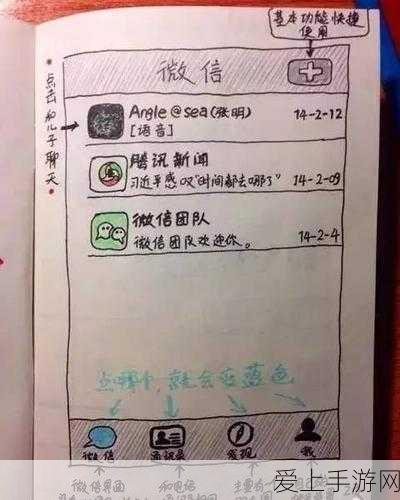 基本功能快捷
使用
微信
点击和儿子聊天
Angle@sea(张明)
14-2-12
[语音]
腾讯新闻
习近平感叹"时间都去哪了"
14-2-09
微信团队
微信团队欢迎你。
14-2-4
点哪个,就会变蓝色
微信
通讯录
发现
我
微信界面
爱上手游网